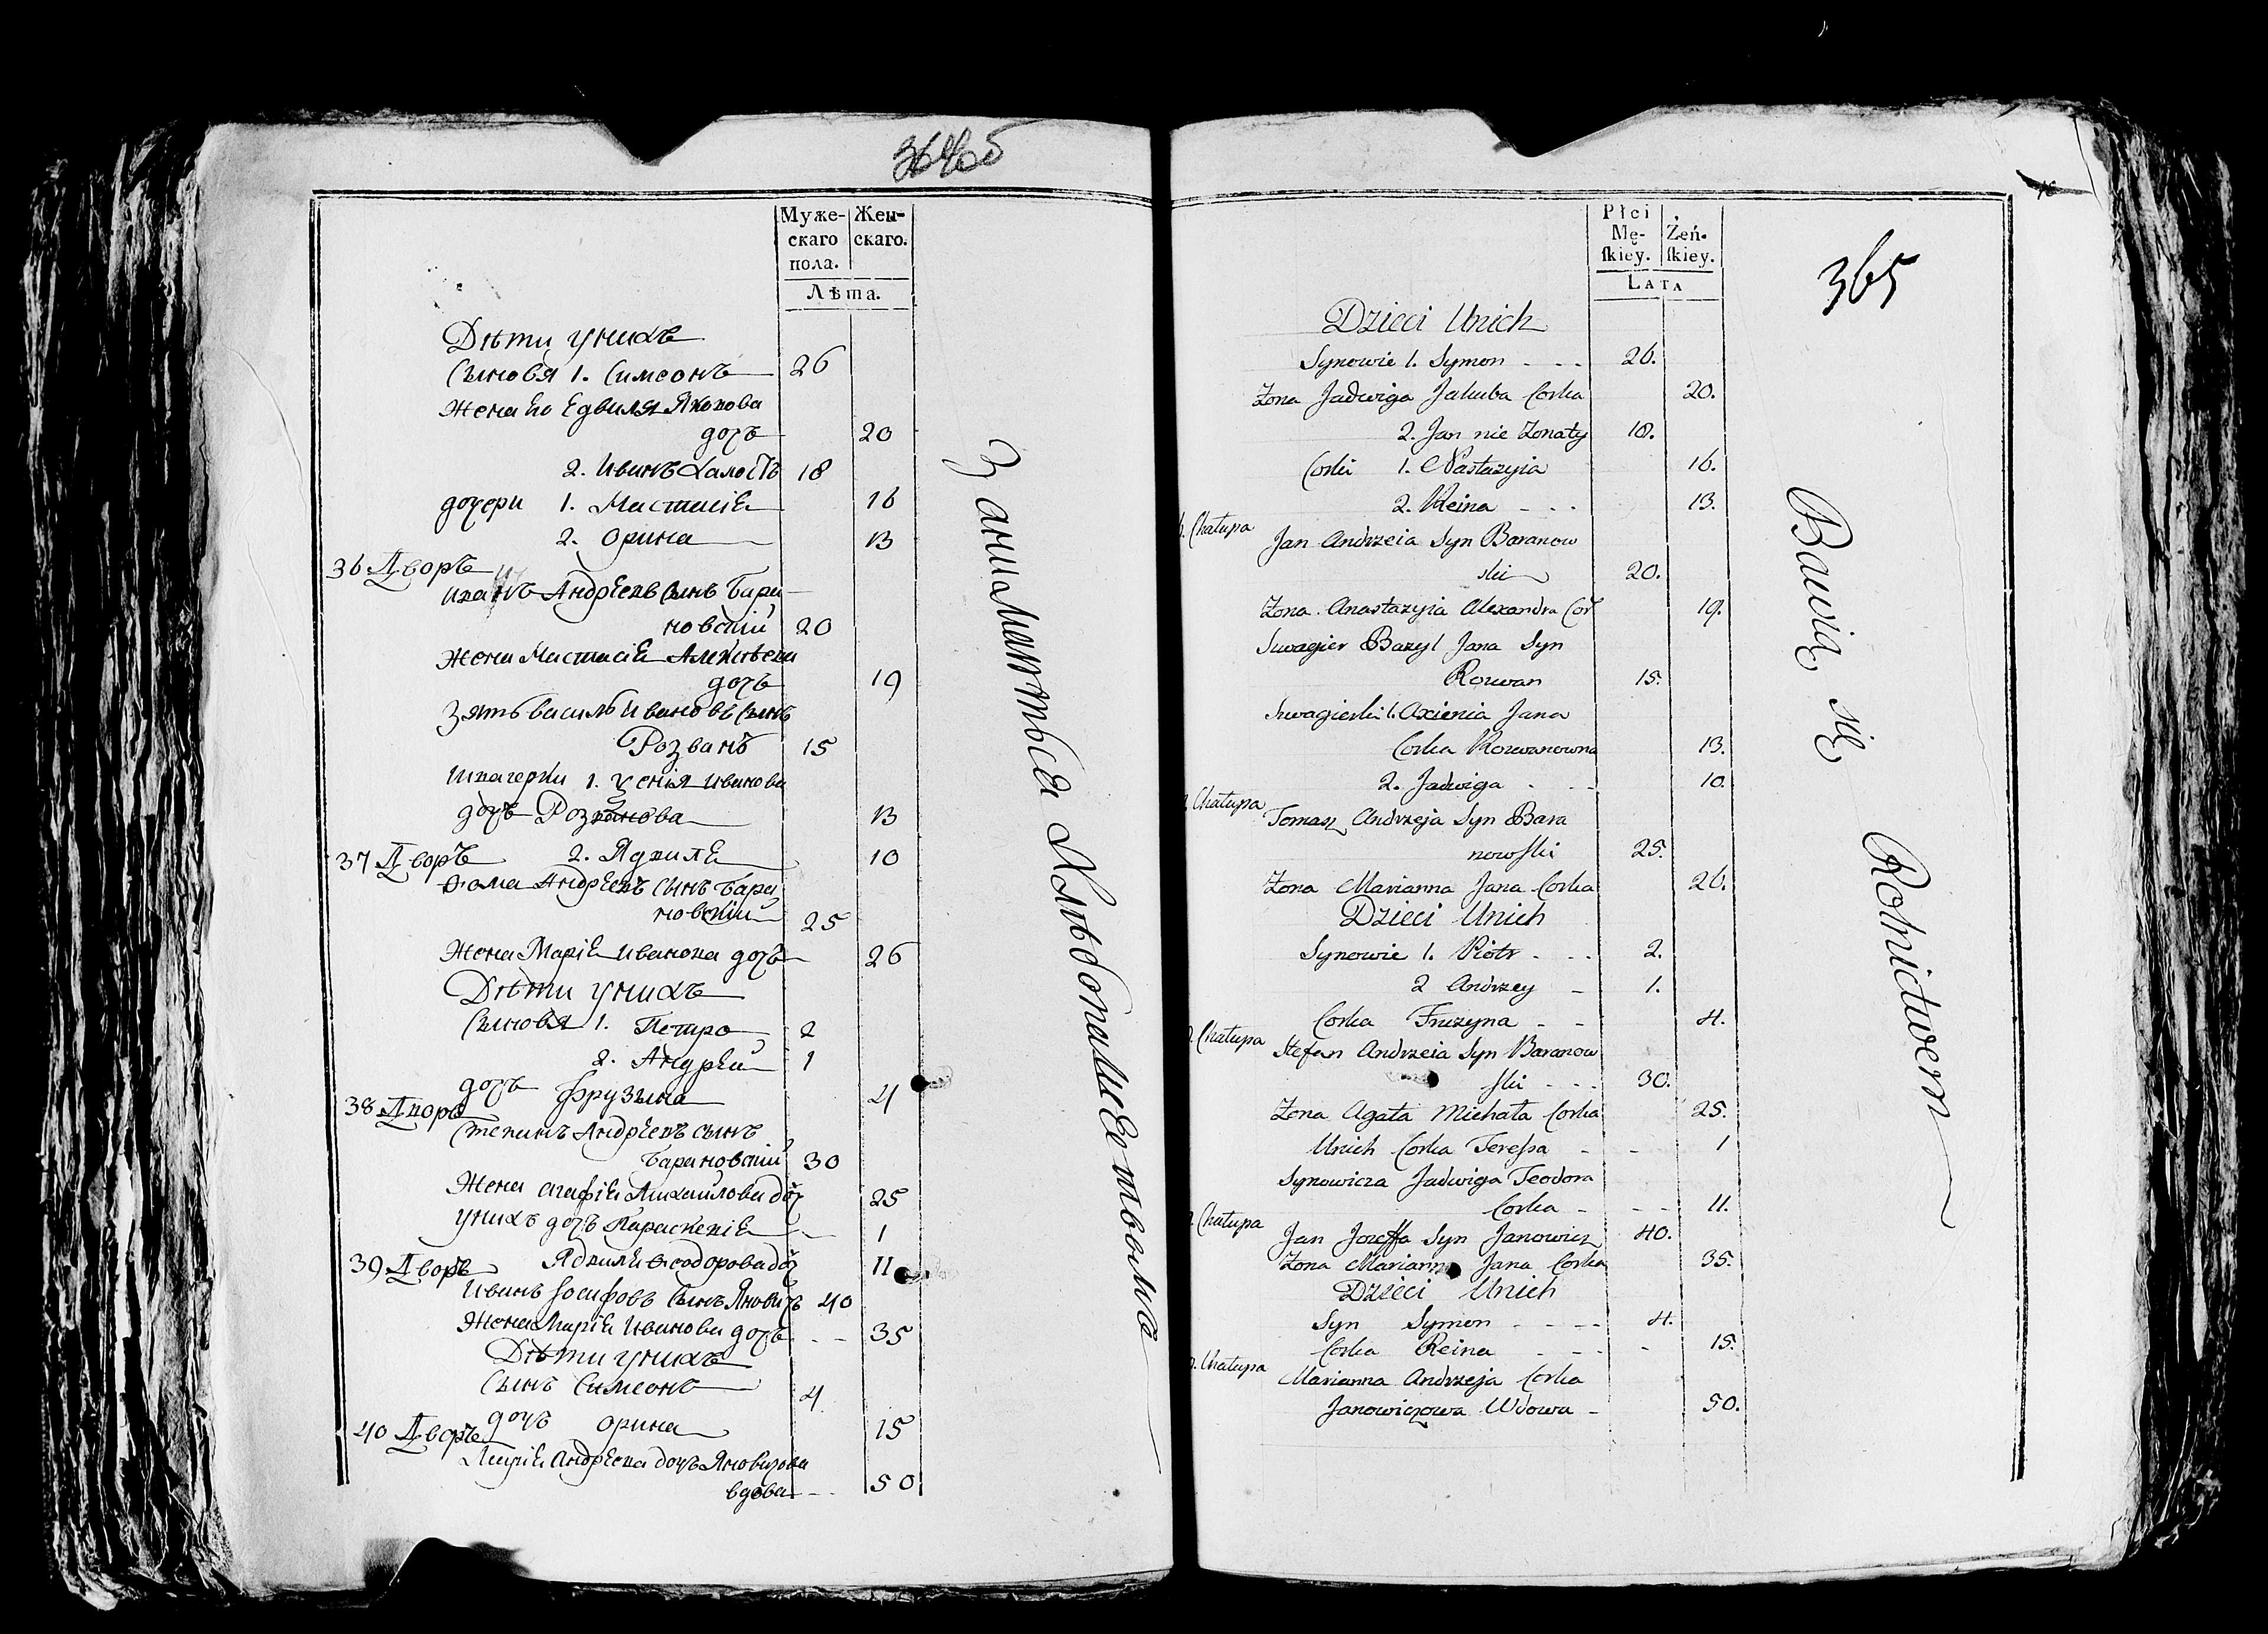 364об
Муже-
скаго
пола.
Жен-
скаго.
Лѣта.
Дѣти унихъ
Сыновя 1. Симеонъ 26
Жена Ео Едвиля Яковова
дочъ 20
2. Иванъ халостъ 18
дочери 1. Мастасія 16
2. Орина 13
36 Дворъ
Иванъ Андреевъ Сынъ Бара
новскій 20
Жена Мастасія Алексѣева
дочъ 19
Зять Василь Ивановъ Сынъ
Розванъ 15
Швагерки 1. Ксенія Иванова
дочъ Розванова 13
2. Ядвиля 10
37 Дворъ
Ѳома Андреевъ Сынъ Бара
новскій 25
Жена Марія Иванова дочъ 26
Дѣти унихъ
Сыновя 1. Петро 2
2. Андрей 1
дочъ Фрузына 4
38 Дворъ
Степанъ Андреевъ сынъ
Барановскій 30
Жена Агафія Михайлова доч 25
унихъ дочъ Параскевія 1
Ядвиля Ѳеодорова доч 11
39 Дворъ
Иванъ Іосифовъ Сынъ Яновичъ 40
Жена Марія Иванова дочъ 35
Дѣти унихъ
Сынъ Симеонъ 4
дочъ Орина 15
40 Дворъ
Марія Андреева дочъ Яновичова
вдова 50
Занимаються Хлѣбопашествомъ
365
Płci
Mę-
ſkiey.
Żeń-
ſkiey.
LATA
Dzieci Unich
Synowie 1. Symon 26.
Zona Jadwiga Jakuba Corka 20.
2. Jan nie Zonaty 18.
Corki 1. Nastazyia 16.
2. Reina 13.
Chałupa
Jan Andrzeia Syn Baranow
ski 20.
Zona Anastazyia Alexandra Cor 19.
Swagier Bazyl Jana Syn
Rozwan 15.
Swagierki 1. Axienia Jana
Corka Rozwanowna 13.
2. Jadwiga 10.
Chałupa
Tomasz Andrzeja Syn Bara
nowſki 25.
Zona Marianna Jana Corka 26.
Dzieci Unich
Synowie 1. Piotr 2.
2 Andrzey 1.
Corka Fruzyna 4.
Chałupa
Stefan Andrzeia Syn Baranow
ſki 30.
Zona Agata Michała Corka 25.
Unich Corka Tereſsa 1
Synowicza Jadwiga Teodora
Corka 11.
Chałupa
Jan Jozeffa Syn Janowicz 40.
Zona Marianna Jana Corka 35.
Dzieci Unich
Syn Symon 4.
Corka Reina 15.
Chałupa
Marianna Andrzeja Corka
Janowiczowa Wdowa 50.
Bawią się Rolnictwem